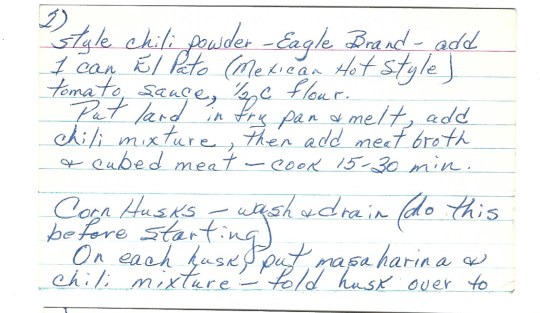 2)
style chili powder - Eagle Brand - add
1 can El Pato (Mexican Hot Style)
tomato sauce, 1/2 c flour.
Put lard in fry pan & melt, add
chili mixture, then add meat broth
& cubed meat - cook 15-30 min.
Corn Husks - wash & drain (do this
before starting)
On each husk, put masa harina &
chili mixture - fold husk over to